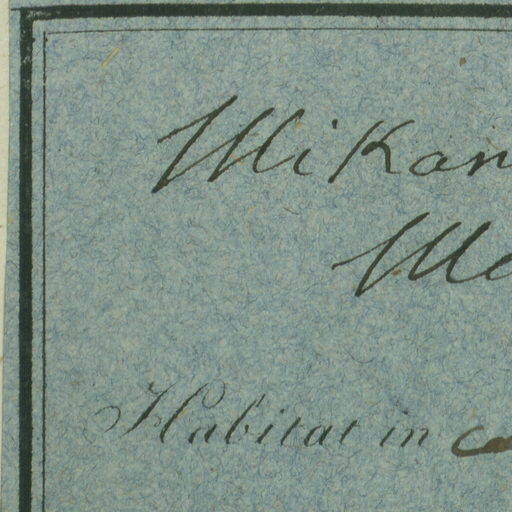 Mikan
Me
Habitat in